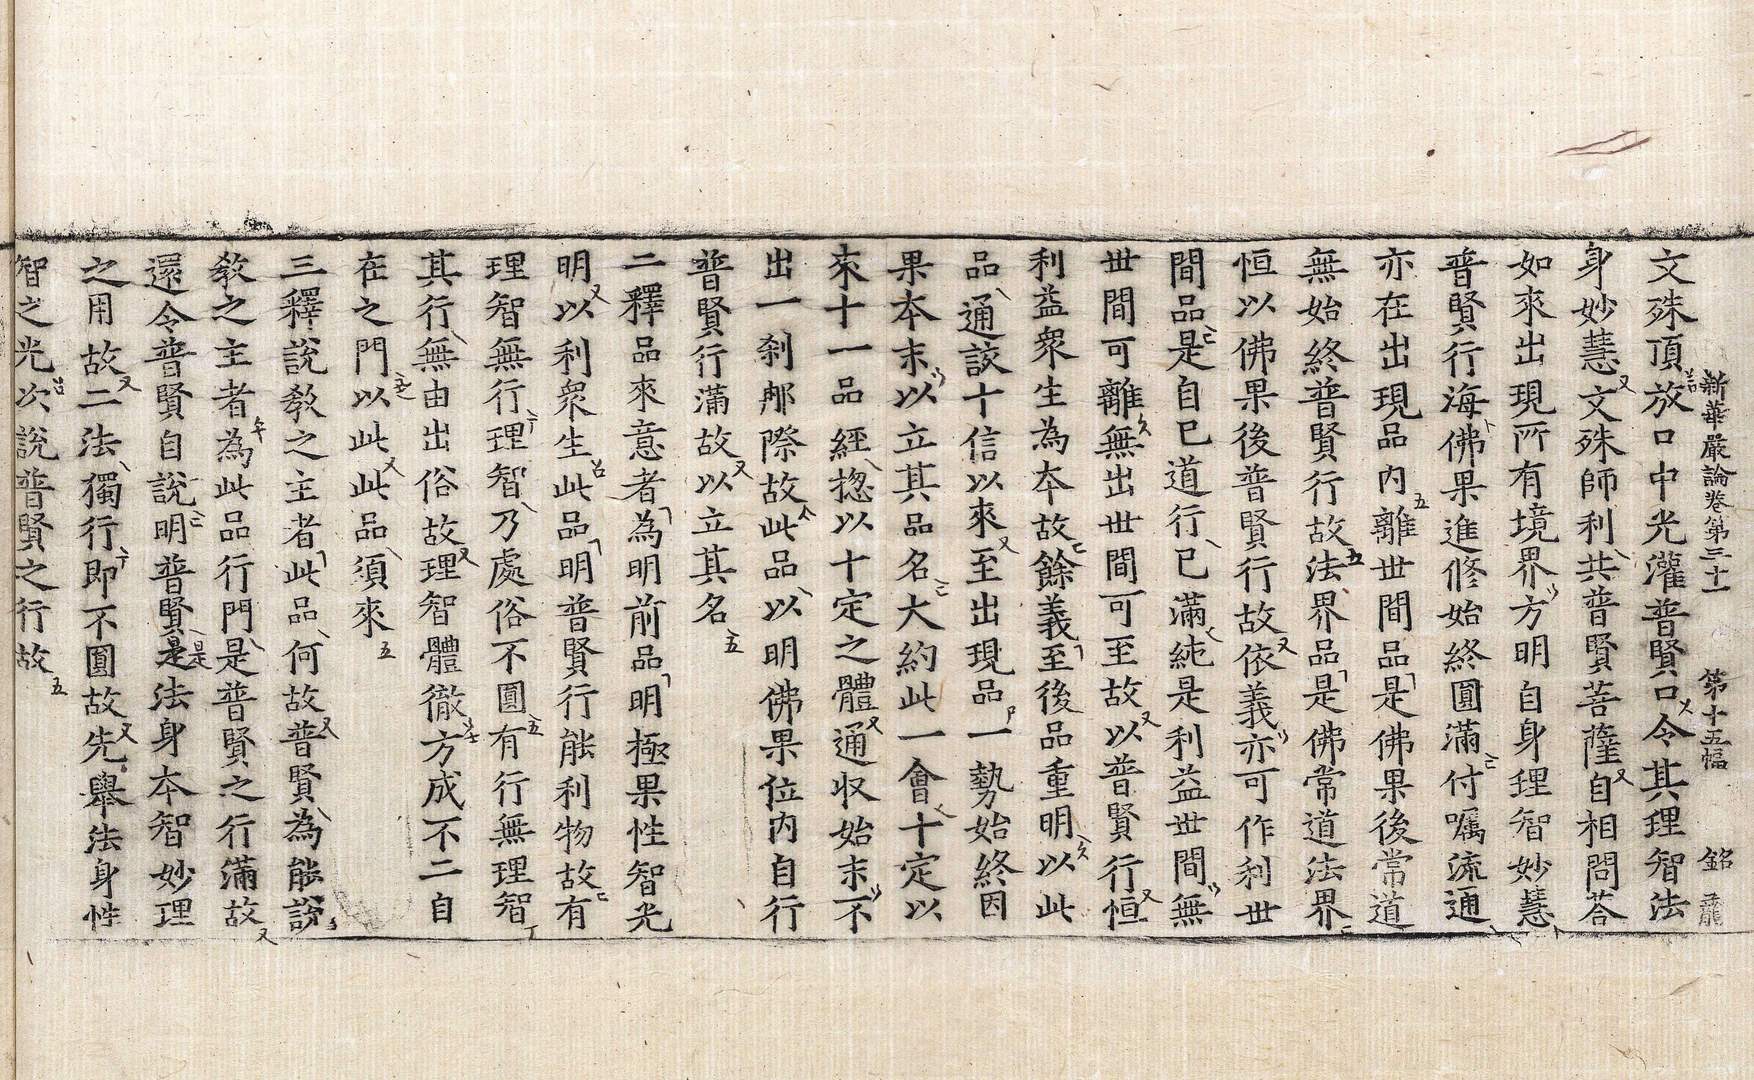 新華嚴論卷第三十一 第十五幅 銘 龍
文殊頂放口中光灌普賢口令其理智法
身妙慧文殊師利共普賢菩薩自相問荅
如來出現所有境界方明自身理智妙慧
普賢行海佛果進修始終圓滿付囑流通
亦在出現品内離世間品是佛果後常道
無始終普賢行故法界品是佛常道法界
恒以佛果後普賢行故依義亦可作利世
間品是自已道行已滿純是利益世間無
世間可離無出世間可至故以普賢行恒
利益衆生為本故餘義至後品重明以此
品通該十信以來至出現品一勢始終因
果本末以立其品名大約此一會十定以
來十一品經揔以十定之體通收始末不
出一刹那際故此品以明佛果位内自行
普賢行滿故以立其名
二釋品來意者為明前品明極果性智光
明以利衆生此品明普賢行能利物故有
理智無行理智乃處俗不圓有行無理智
其行無由出俗故理智體徹方成不二自
在之門以此此品須來
三釋說教之主者此品何故普賢為能說
教之主者為此品行門是普賢之行滿故
還令普賢自說明普賢是法身本智妙理
之用故二法獨行即不圓故先舉法身性
智之光次說普賢之行故